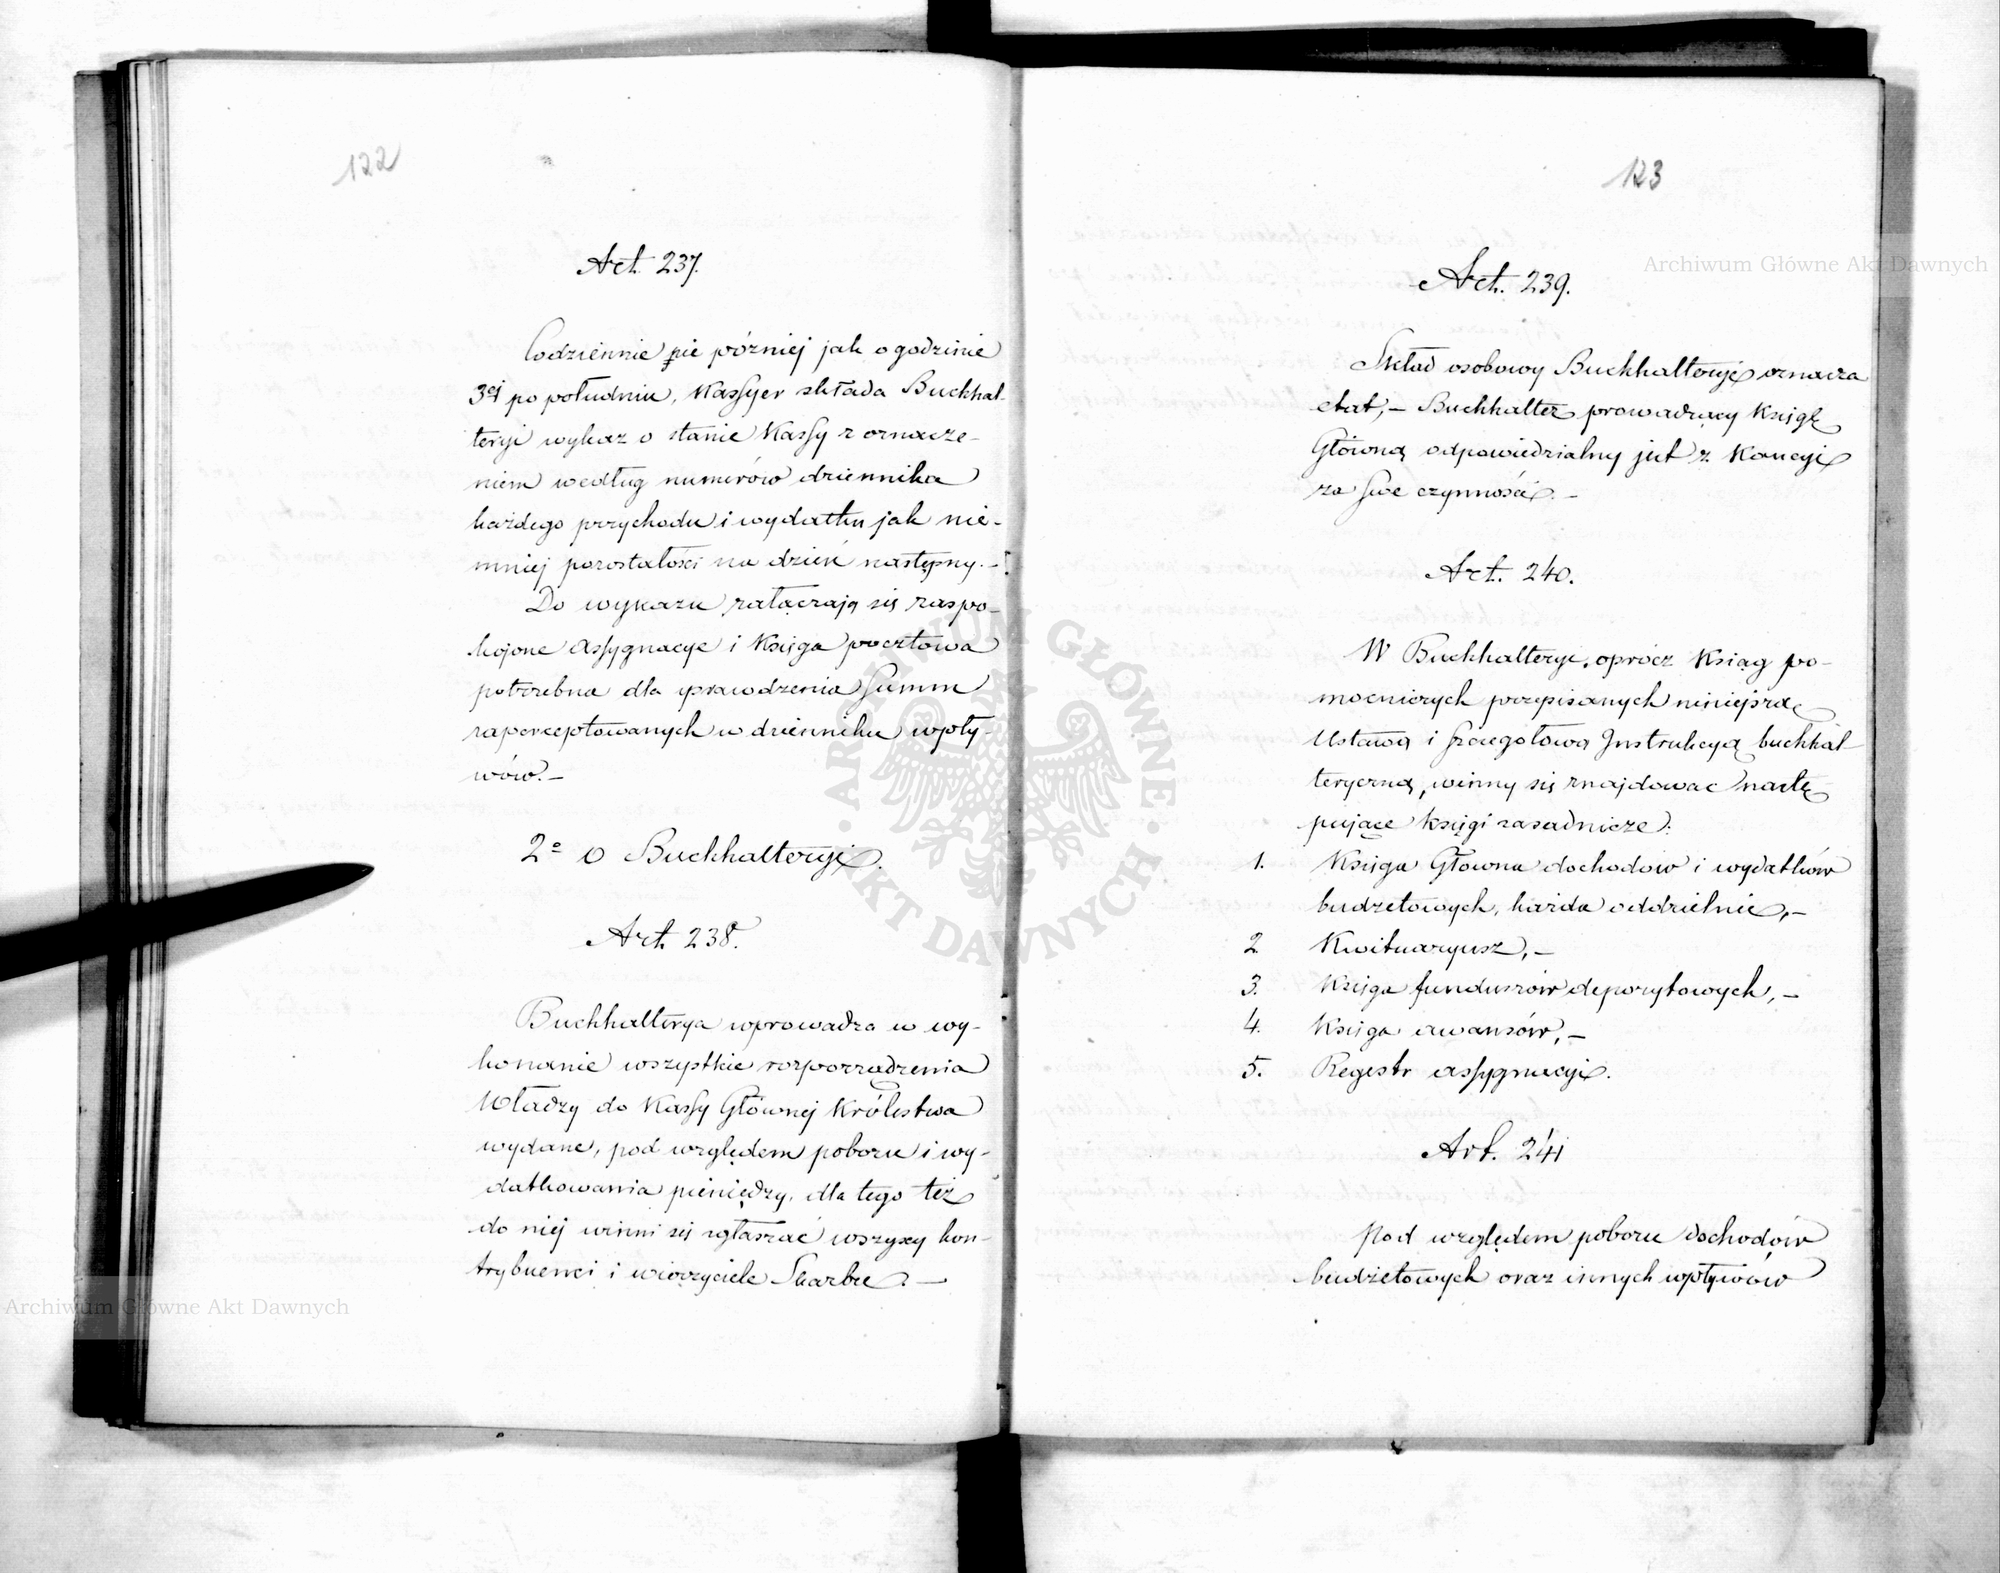 122
Art. 237.
Codziennie nie pózniej jak o godzinie
3ej po południu, Kassyer składa Buchhal-
teryi wykaz o stanie Kassy z oznacze-
niem według numerów dziennika
każdego przychodu i wydatku jak nie-
mniej pozostałości na dzień następny.-
Do wykazu załączają się zaspo-
kojone assygnacye i Księga pocztowa
potrzebna dla sprawdzenia Summ
zaperceptowanych w dzienniku wpły-
wów.-
2o O Buchhalteryi.
Art. 238.
Buchhalterya wprowadza w wy-
konanie wszystkie rozporządzenia
Władzy do Kassy Głównej Królestwa
wydane, pod względem poboru i wy-
datkowania pieniędzy, dla tego też
do niej winni się zgłaszać wszyscy kon-
trybuenci i wierzyciele Skarbu. —
123
Art. 239.
Skład osobowy Buchhalteryi oznacza
etat,- Buchhalter prowadzący Księgę
Główną odpowiedzialny jest z Kaucyi
za swe czynności. -
Art. 240.
W Buchhalteryi, oprócz Ksiąg po-
mocniczych przepisanych niniejszą
Ustawą i szczegółową Instrukcyą buchhal
teryczną, winny się znajdować nastę
pujące księgi zasadnicze:
1. Księga Główna dochodów i wydatków
budżetowych, każda oddzielnie,-
2. Kwitaryusz,-
3. Księga funduszów depozytowych,-
4. Księga awansów,-
5. Regestr assygnacyi.
Art. 241
Pod względem poboru dochodów
budżetowych oraz innych wpływów
Archiwum Główne Akt Dawnych
ARCHIWUM GŁÓWNE AKT DAWNYCH
Archiwum Główne Akt Dawnych